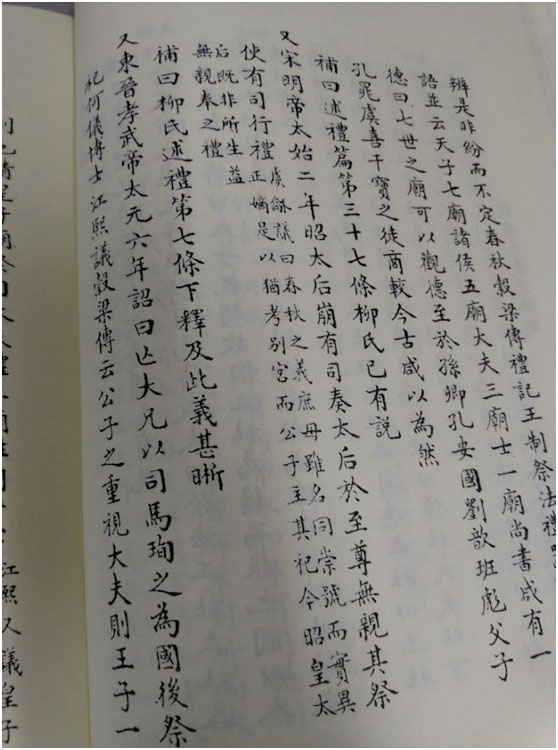 辨是非紛而不定春秋穀梁傳禮記王制祭法禮
語並云天子七廟諸侯五廟大夫三廟士一廟尚書咸有一
德曰七世之廟可以觀德至於孫卿孔安國劉歆班彪父子
孔晁虞喜干寶之徒商較今古咸以為然
補曰述禮篇第三十七條柳氏已有説
又宋明帝太始二年昭太后崩有司奏太后於至尊無親其祭
使有司行禮虞龢議曰春秋之義庶母雖名同崇號而實異
正嫡是以猶考别宫而公子主其祀今昭皇太
后既非所生益
無親奉之禮
補曰柳氏述禮第七條下釋及此義甚晰
又東晉孝武帝太元六年詔曰亡大兄以司馬珣之為國後祭
祀何儀博士江熙議穀梁傳云公子之重視大夫則王子一
江熙又議皇子